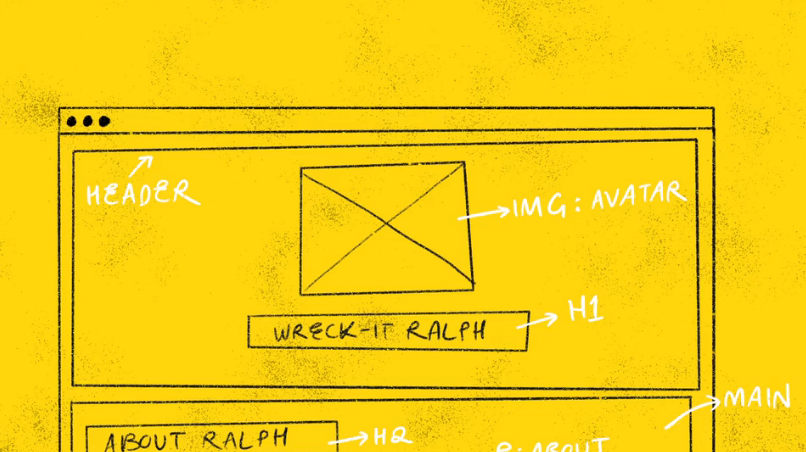 HEADER
IMG: AVATAR
WRECK-IT RALPH
H1
MAIN
ABOUT RALPH
H2
P: ABOUT